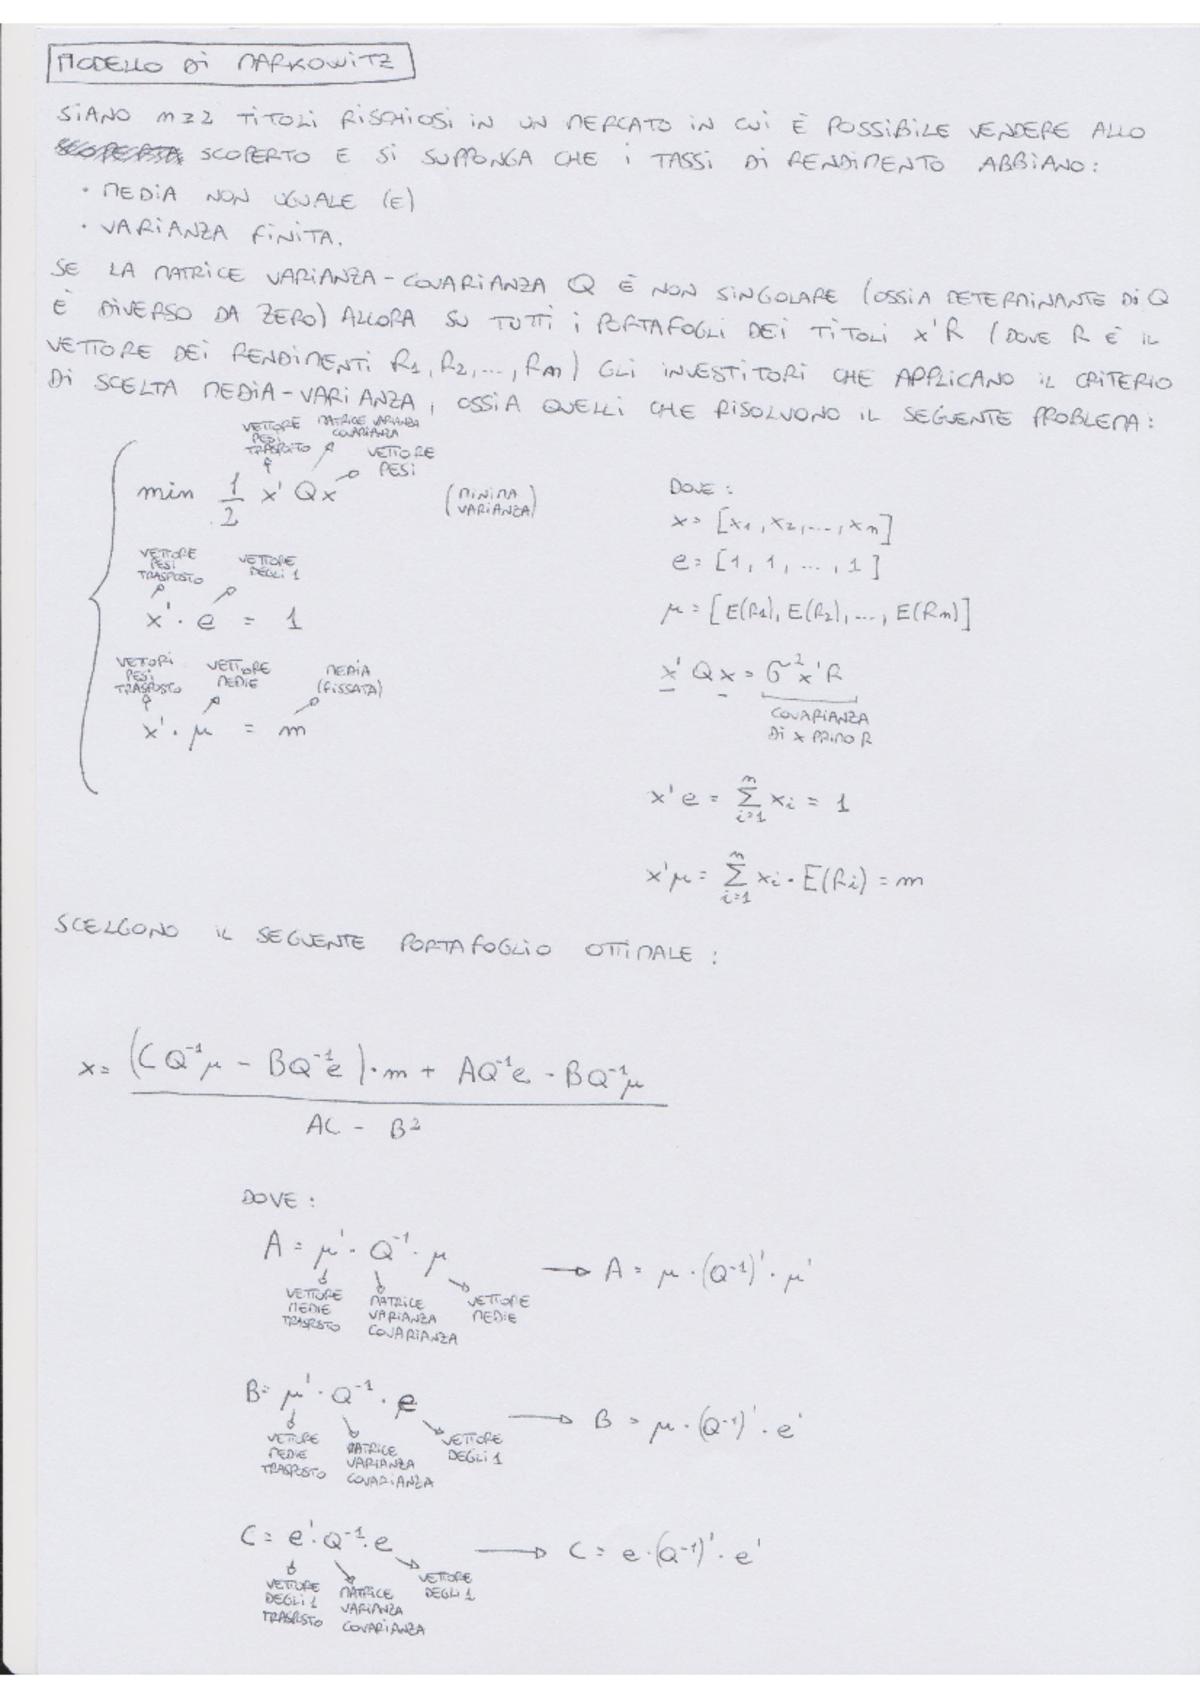 MODELLO DI MARKOWITZ
SIANO n≥2 TITOLI RISCHIOSI IN UN MERCATO IN CUI È POSSIBILE VENDERE ALLO
SCOPERTO E SI SUPPONGA CHE I TASSI DI RENDIMENTO ABBIANO:
• MEDIA NON UGUALE (E)
• VARIANZA FINITA.
SE LA MATRICE VARIANZA-COVARIANZA Q È NON SINGOLARE (OSSIA DETERMINANTE DI Q
È DIVERSO DA ZERO) ALLORA SU TUTTI I PORTAFOGLI DEI TITOLI x'R (DOVE R È IL
VETTORE DEI RENDIMENTI R1, R2, ..., Rn) GLI INVESTITORI CHE APPLICANO IL CRITERIO
DI SCELTA MEDIA-VARIANZA, OSSIA QUELLI CHE RISOLVONO IL SEGUENTE PROBLEMA:
VETTORE PESI TRASPOSTO
MATRICE VARIANZA COVARIANZA
VETTORE PESI
min 1/2 x' Qx (MINIMA VARIANZA)
VETTORE PESI TRASPOSTO
VETTORE DEGLI 1
x' · e = 1
VETTORI PESI TRASPOSTO
VETTORE MEDIE
MEDIA (FISSATA)
x' · μ = m
DOVE:
x = [x1, x2, ..., xn]
e = [1, 1, ..., 1]
μ = [E(R1), E(R2), ..., E(Rn)]
x' Qx = σ² x'R
COVARIANZA
DI x PRIMO R
x'e = Σ(i=1, n) xi = 1
x'μ = Σ(i=1, n) xi · E(Ri) = m
SCELGONO IL SEGUENTE PORTAFOGLIO OTTIMALE:
x = (CQ⁻¹μ - BQ⁻¹e)·m + AQ⁻¹e - BQ⁻¹μ
AC - B²
DOVE:
A = μ' · Q⁻¹ · μ → A = μ · (Q⁻¹)' · μ'
VETTORE MEDIE TRASPOSTO
MATRICE VARIANZA COVARIANZA
VETTORE MEDIE
B = μ' · Q⁻¹ · e → B = μ · (Q⁻¹)' · e'
VETTORE MEDIE TRASPOSTO
MATRICE VARIANZA COVARIANZA
VETTORE DEGLI 1
C = e' · Q⁻¹ · e → C = e · (Q⁻¹)' · e'
VETTORE DEGLI 1 TRASPOSTO
MATRICE VARIANZA COVARIANZA
VETTORE DEGLI 1